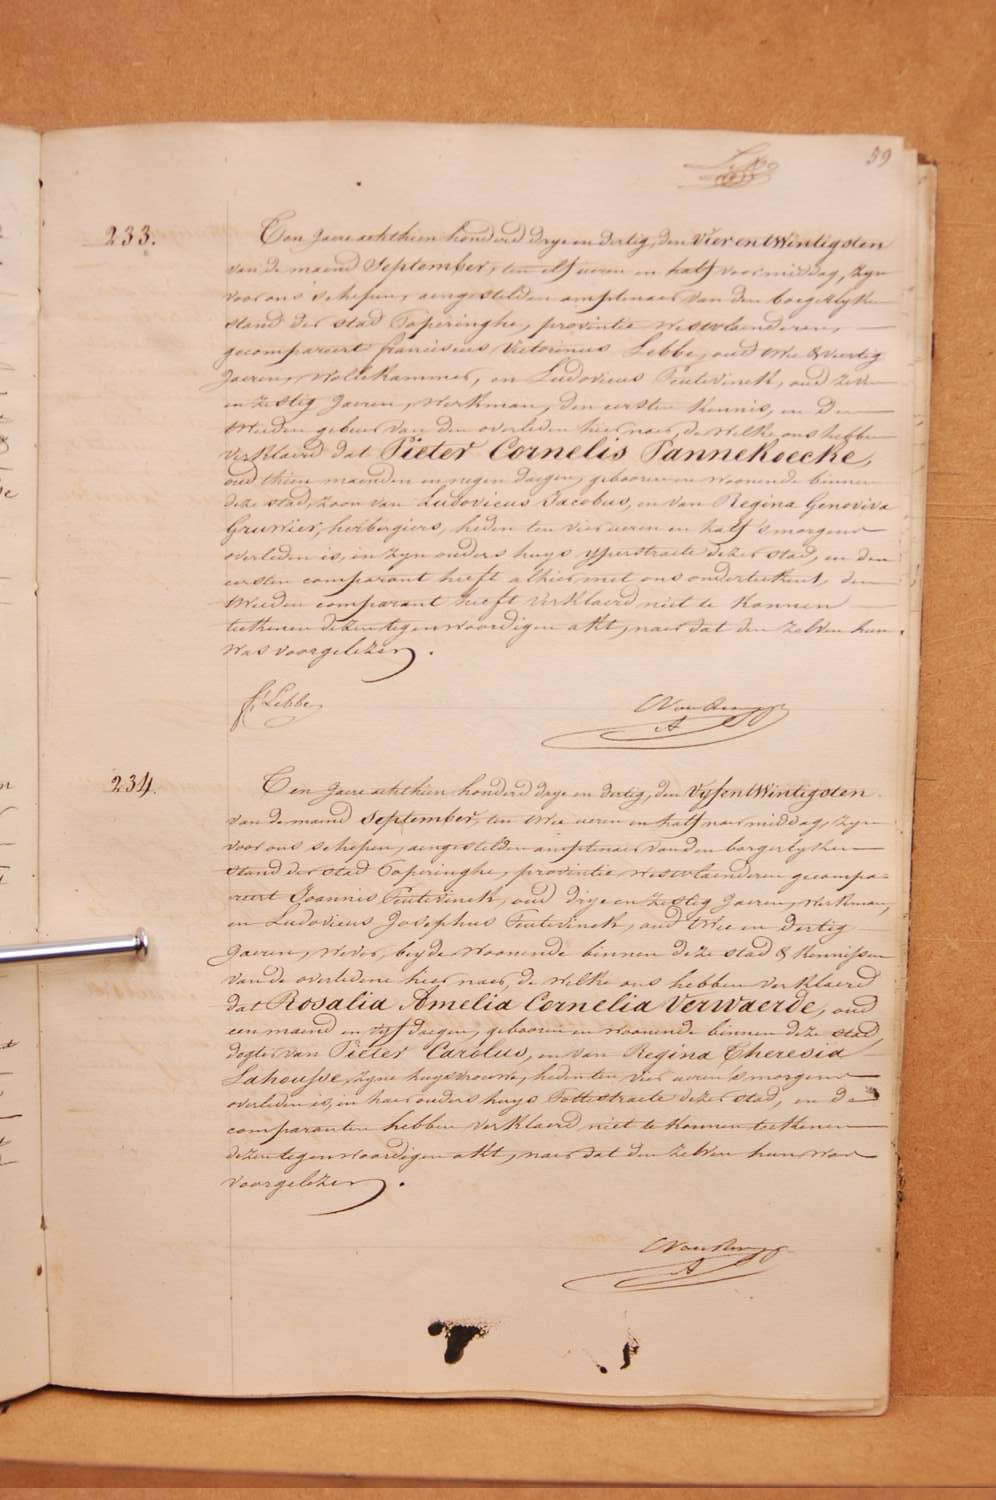 59
233.
Ten jaere achthien honderd drye en dertig, den vierentwintigsten
van de maend September, ten elf ueren en half voormiddag, zyn
voor ons schepen, aengestelden amptenaer van den borgerlyken
stand der stad Poperinghe, provintie Westvlaenderen,
gecompareert franciscus Victorinus Lebbe, oud twee & veertig
Jaeren, Wollekammer, en Ludovicus Feutrinck, oud zeven
en zestig Jaeren, Werkman, den eersten kennis, en den
tweeden gebuer van den overleden hier naer, de welke ons hebben
verklaerd dat Pieter Cornelis Pannekoecke,
oud thien maenden en negen daegen, gebooren en woonende binnen
deze stad, zoon van Ludovicus Jacobus, en van Regina Genoviva
Gruwier, herbergiers, heden ten vier ueren en half 's morgens
overleden is, in zyn ouders huys ypperstraete dezer stad, en den
eersten comparant heeft alhier met ons onderteekent, den
tweeden comparant heeft verklaerd niet te konnen
teekenen dezen tegenwoordigen akt, naer dat den zelven hun
was voorgelezen.
fs Lebbe
234.
Ten jaere achthien honderd drye en dertig, den vyfentwintigsten
van de maend September, ten twee ueren en half naermiddag, zyn
voor ons schepen, aengestelden amptenaer van den borgerlyken
stand der stad Poperinghe, provintie Westvlaenderen gecompa-
reert Joannis Feutrinck, oud drye en zestig Jaeren, werkman,
en Ludovicus Josephus Feutrinck, oud twee en dertig
Jaeren, wever, beyde woonende binnen deze stad & kennissen
van de overledene hier naer, de welke ons hebben verklaerd
dat Rosalia Amelia Cornelia Verwaerde, oud
een maend en vyf daegen, gebooren en woonende binnen deze stad,
dogter van Pieter Carolus, en van Regina Theresia
Lahousse, zyne huysvrouwe, heden ten vier ueren 's morgens
overleden is, in haer ouders huys Pottestraete dezer stad, en de
comparanten hebben verklaerd niet te konnen teekenen
dezen tegenwoordigen akt, naer dat den zelven hun was
voorgelezen.